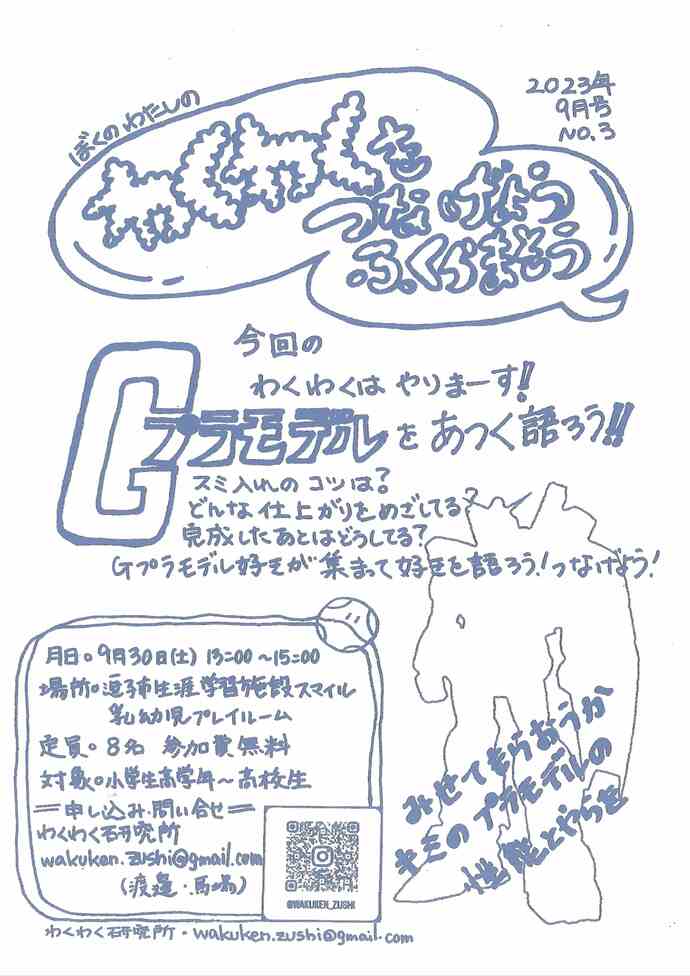 2023年
9月号
NO.3
ぼくのわたしの
わくわくを
つなげよう
ふくらまそう
今回の
わくわくは やりまーす!!
Gプラモデルを あつく語ろう!!
スミ入れの コツは?
どんな仕上がりをめざしてる?
完成したあとはどうしてる?
Gプラモデル好きが 集まって好きを語ろう!つなげよう!
月日。9月30日(土) 13:00~15:00
場所。逗子市生涯学習施設スマイル
乳幼児プレイルーム
定員。8名 参加費無料
対象。小学生高学年~高校生
==申し込み・問い合せ==
わくわく研究所
wakuken.zushi@gmail.com
(渡邉・馬場)
@WAKUKEN_ZUSHI
みせてもらおうか
キミのプラモデルの
性能とやらを
わくわく研究所・wakuken.zushi@gmail.com